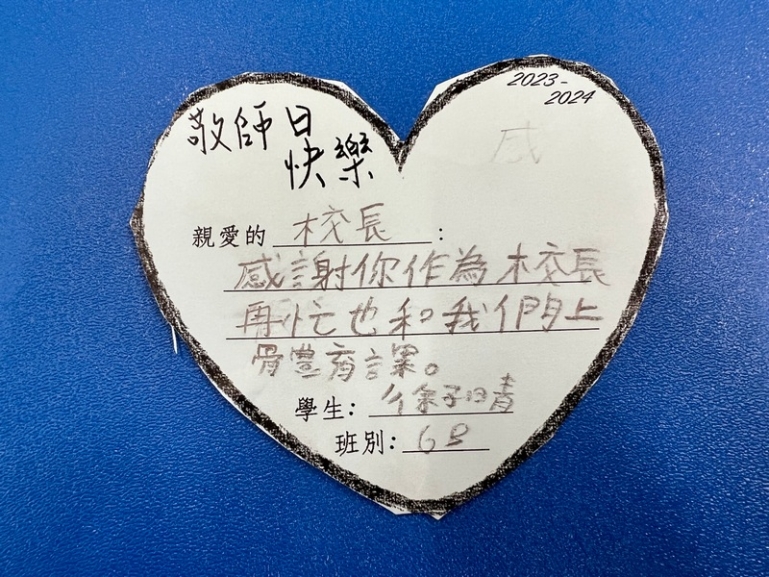 2023-
2024
敬師日
快樂
感
親愛的 校長 :
感謝你作為校長
再忙也和我們上
體育課。
學生: 徐子晴
班別: 6B